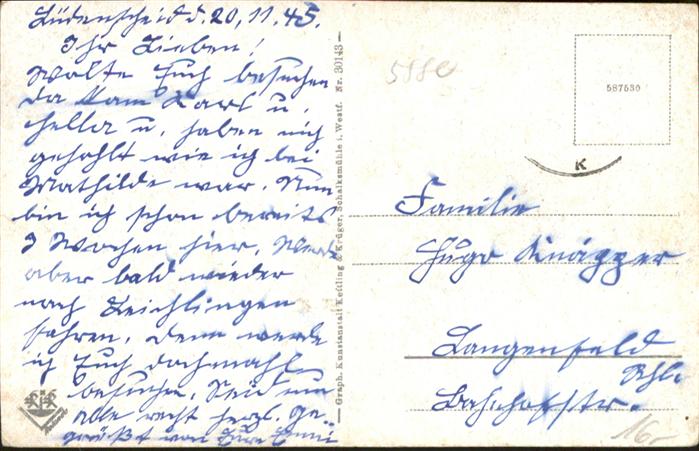 Lüdenscheid d. 20, 11. 45.
Ihr Lieben!
Wolte Euch besuchen
da kam Karl u.
Hella u. haben mich
geholt wie ich bei
Mathilde war. Nun
bin ich schon bereits
3 Wochen hier, werde
aber bald wieder
nach Leichlingen
fahren. Dann werde
ich Euch dochmahl
besuchen. Seid nun
Alle recht herzl. ge-
grüßt von Eure Emmi
Graph. Kunstanstalt Kettling & Krüger, Schalksmühle i. Westf. Nr. 30143
5980
587530
K
Familie
Hugo
Langenfeld
Rhl.
Bahnhofstr.
16,-